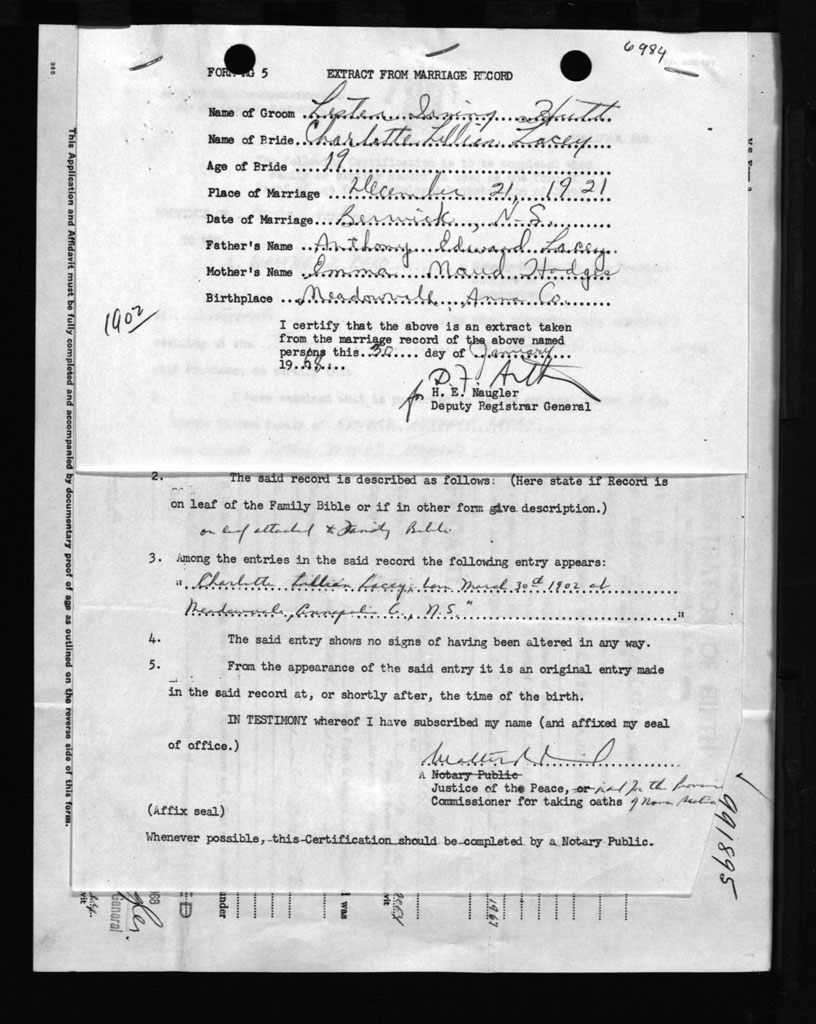 6984
FORM RG 5 EXTRACT FROM MARRIAGE RECORD
Name of Groom Lester Irving
Name of Bride Charlotte Lillian Lacey
Age of Bride 19
Place of Marriage December 21, 1921
Date of Marriage Berwick, N.S.
Father's Name Anthony Edward Lacey
Mother's Name Emma Maud Hodges
Birthplace Meadowvale, Anna Co.
1902
I certify that the above is an extract taken
from the marriage record of the above named
persons this 30 day of January
1968
for
H. E. Naugler
Deputy Registrar General
2. The said record is described as follows: (Here state if Record is
on leaf of the Family Bible or if in other form give description.)
on leaf attached to Family Bible
3. Among the entries in the said record the following entry appears:
" Charlotte Lillian Lacey, born March 30th 1902 at
Meadowvale, Annapolis Co., N.S."
4. The said entry shows no signs of having been altered in any way.
5. From the appearance of the said entry it is an original entry made
in the said record at, or shortly after, the time of the birth.
IN TESTIMONY whereof I have subscribed my name (and affixed my seal
of office.)
A Notary Public
Justice of the Peace, or in and for the Province
Commissioner for taking oaths of Nova Scotia
(Affix seal)
Whenever possible, this Certification should be completed by a Notary Public.
This Application and Affidavit must be fully completed and accompanied by documentary proof of age as outlined on the reverse side of this form.
991895
General
under
I was
1967